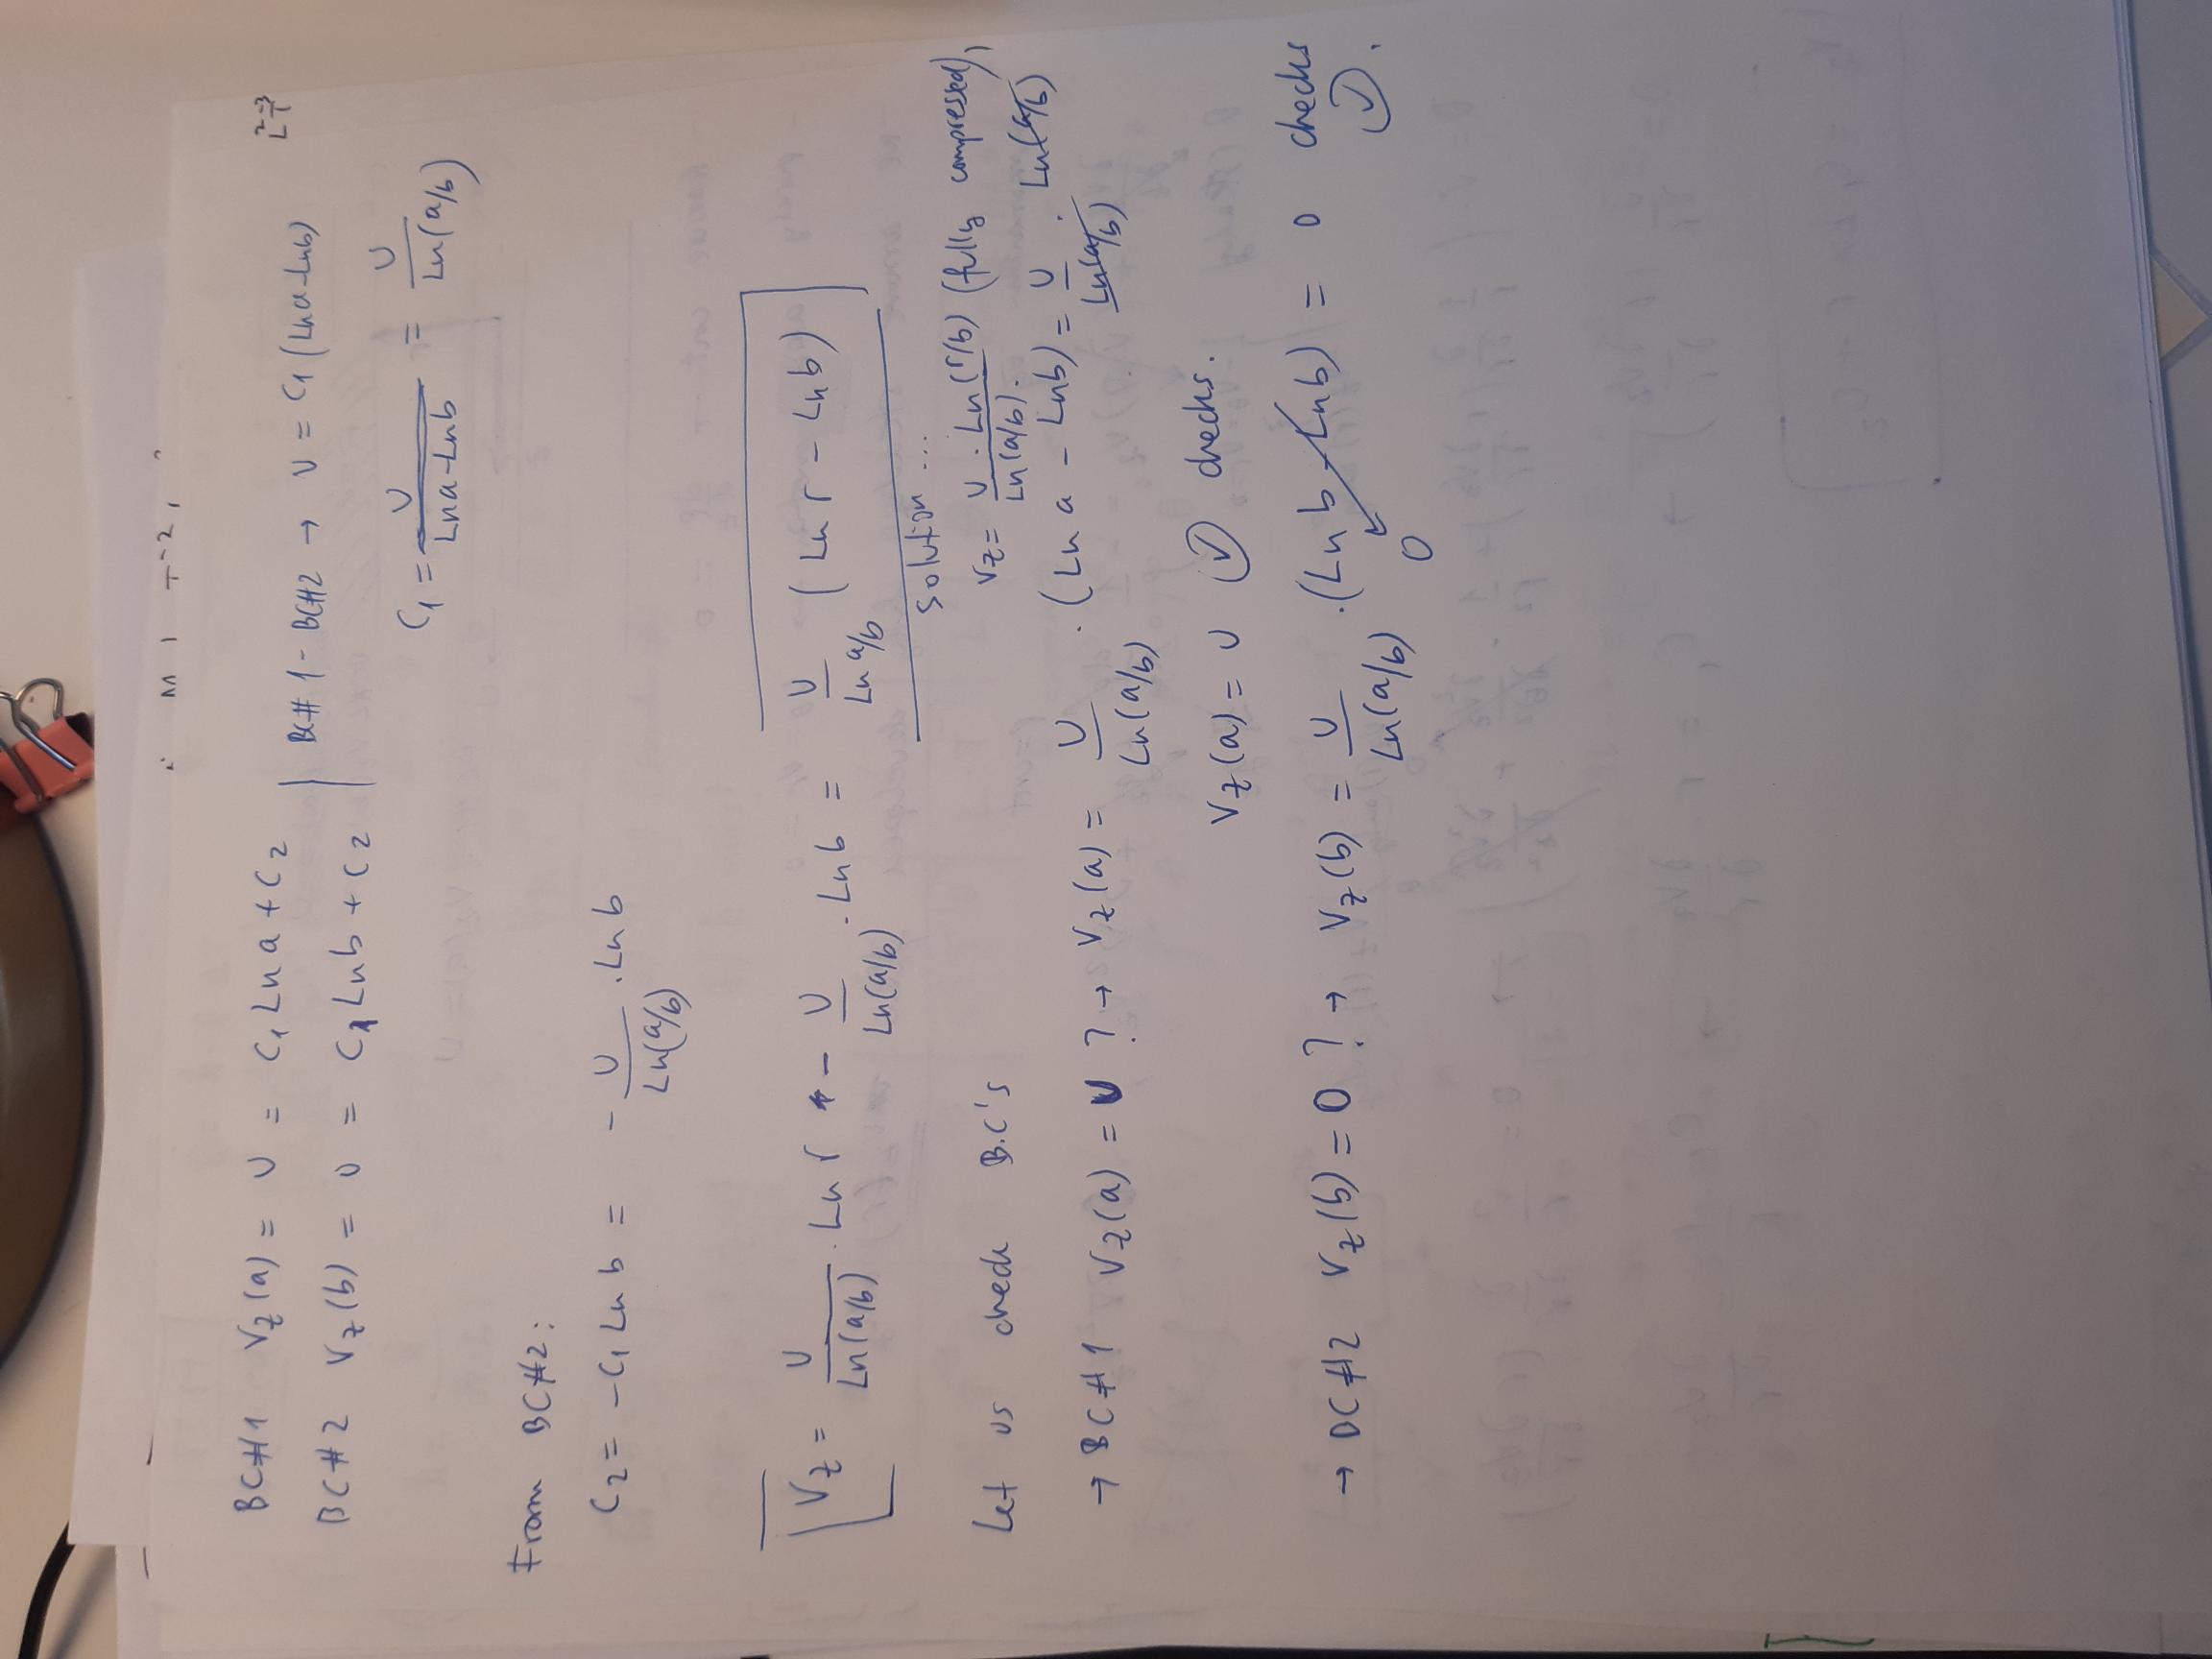 M L T⁻²
BC#1 Vz(a) = U = C₁ Ln a + C₂
BC#2 Vz(b) = 0 = C₁ Ln b + C₂
BC#1 - BC#2 → U = C₁ (Ln a - Ln b)
L² T⁻³
C₁ = U / (Ln a - Ln b) = U / Ln(a/b)
From BC#2:
C₂ = - C₁ Ln b = - U / Ln(a/b) . Ln b
Vz = U / Ln(a/b) . Ln r - U / Ln(a/b) . Ln b = U / Ln a/b (Ln r - Ln b)
solution ...
Vz = U . Ln(r/b) / Ln(a/b). (fully compressed),
Let us check B.C's
→ BC#1 Vz(a) = U ? → Vz(a) = U / Ln(a/b) . (Ln a - Ln b) = U / Ln(a/b) . Ln(a/b)
Vz(a) = U ✓ checks.
→ BC#2 Vz(b) = 0 ? → Vz(b) = U / Ln(a/b) . (Ln b - Ln b) = 0 checks
0
✓.